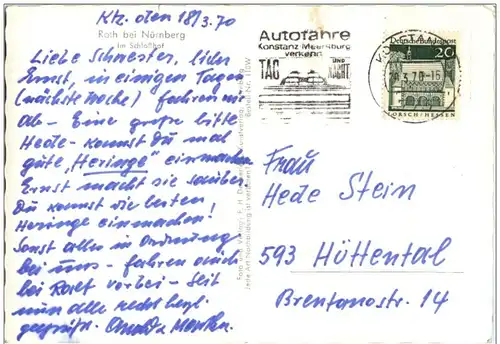 Ktz. den 18/3.70
Roth bei Nürnberg
im Schloßhof
Liebe Schwester, lieber
Ernst, in einigen Tagen
(nächste Woche) fahren wir
ab – Eine große bitte
Hede – kannst Du mal
gute „Heringe" einmachen
Ernst macht sie sauber.
Du kannst die besten
Heringe einmachen!
Sonst alles in Ordnung
bei uns – fahren auch
bei vorbei – Seid
nun alle recht herzl.
gegrüßt.
Autofähre
Konstanz-Meersburg
verkehrt
TAG UND NACHT
KONSTANZ
.3.70-15
Deutsche Bundespost
20
LORSCH/HESSEN
Frau
Hede Stein
593 Hüttental
Brentanostr. 14